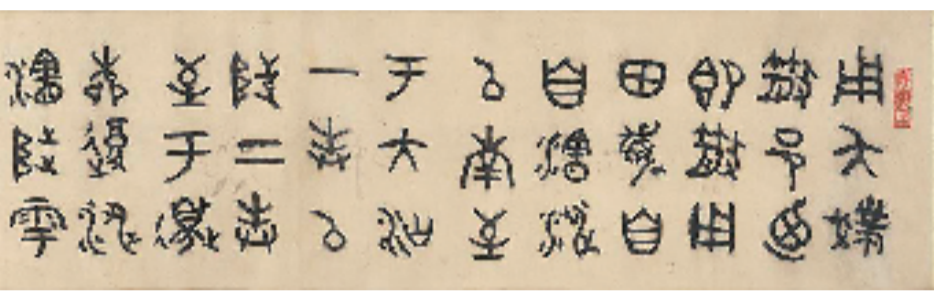 用夨
散邑迺
即散用
田眉自
自瀗涉
以南至
于大沽
一封以
陟二封
至于邊
柳復涉
瀗陟雩